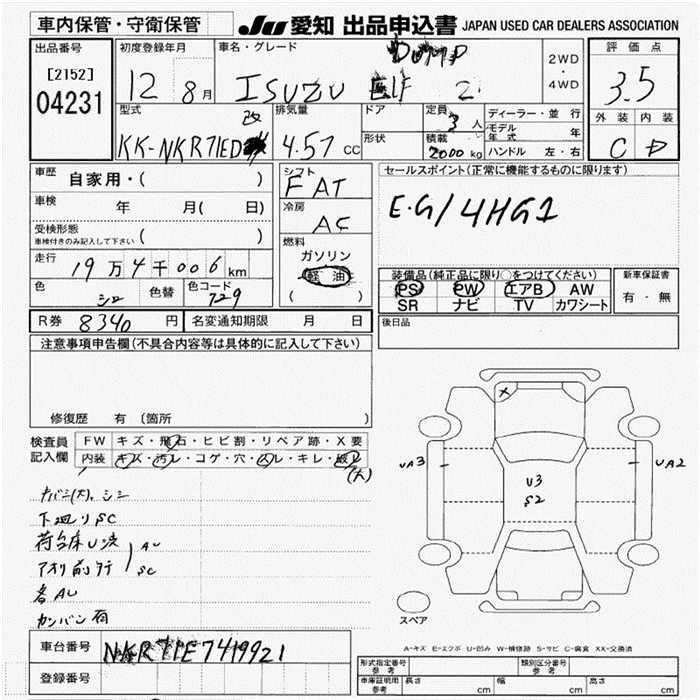 車内保管・守衛保管
JU 愛知 出品申込書 JAPAN USED CAR DEALERS ASSOCIATION
出品番号
[2152]
04231
初度登録年月
12 8月
車名・グレード
DUMP
ISUZU ELF 2
2WD
・
4WD
評価点
3.5
外装 内装
C D
型式
改
KK-NKR71ED
排気量
4.57 CC
ドア
形状
定員
3 人
積載
2000 kg
ディーラー・並行
モデル年式 年
ハンドル 左・右
車歴
自家用・( )
車検
年 月( 日)
受検形態
車検付きのみ記入して下さい ( )
走行
19万4千006km
色 シロ 色替 色コード 729
シフト
FAT
冷房
AC
燃料
ガソリン
軽油
( )
セールスポイント(正常に機能するものに限ります)
E.G/4HG1
装備品(純正品に限り○をつけてください)
PS PW エアB AW
SR ナビ TV カワシート
新車保証書
有・無
R券 8340 円 名変通知期限 月 日
後日品
注意事項申告欄(不具合内容等は具体的に記入して下さい)
修復歴 有 〔箇所 〕
検査員記入欄
FW キズ・飛石・ヒビ割・リペア跡・X要
内装 キズ・汚レ・コゲ・穴・スレ・キレ・破レ
(大)
シミ
下廻りSC
荷台床U
AU
アオリ前
SC
各AU
カンバン有
X
UA3
U3
S2
UA2
スペア
A-キズ E-エクボ U-凹み W-補修跡 S-サビ C-腐食 XX-交換済
車台番号 NKR71E7419921
登録番号
形式指定番号 参考
類別区分番号 参考
車庫証明用 参考
長さ cm 幅 cm 高さ cm